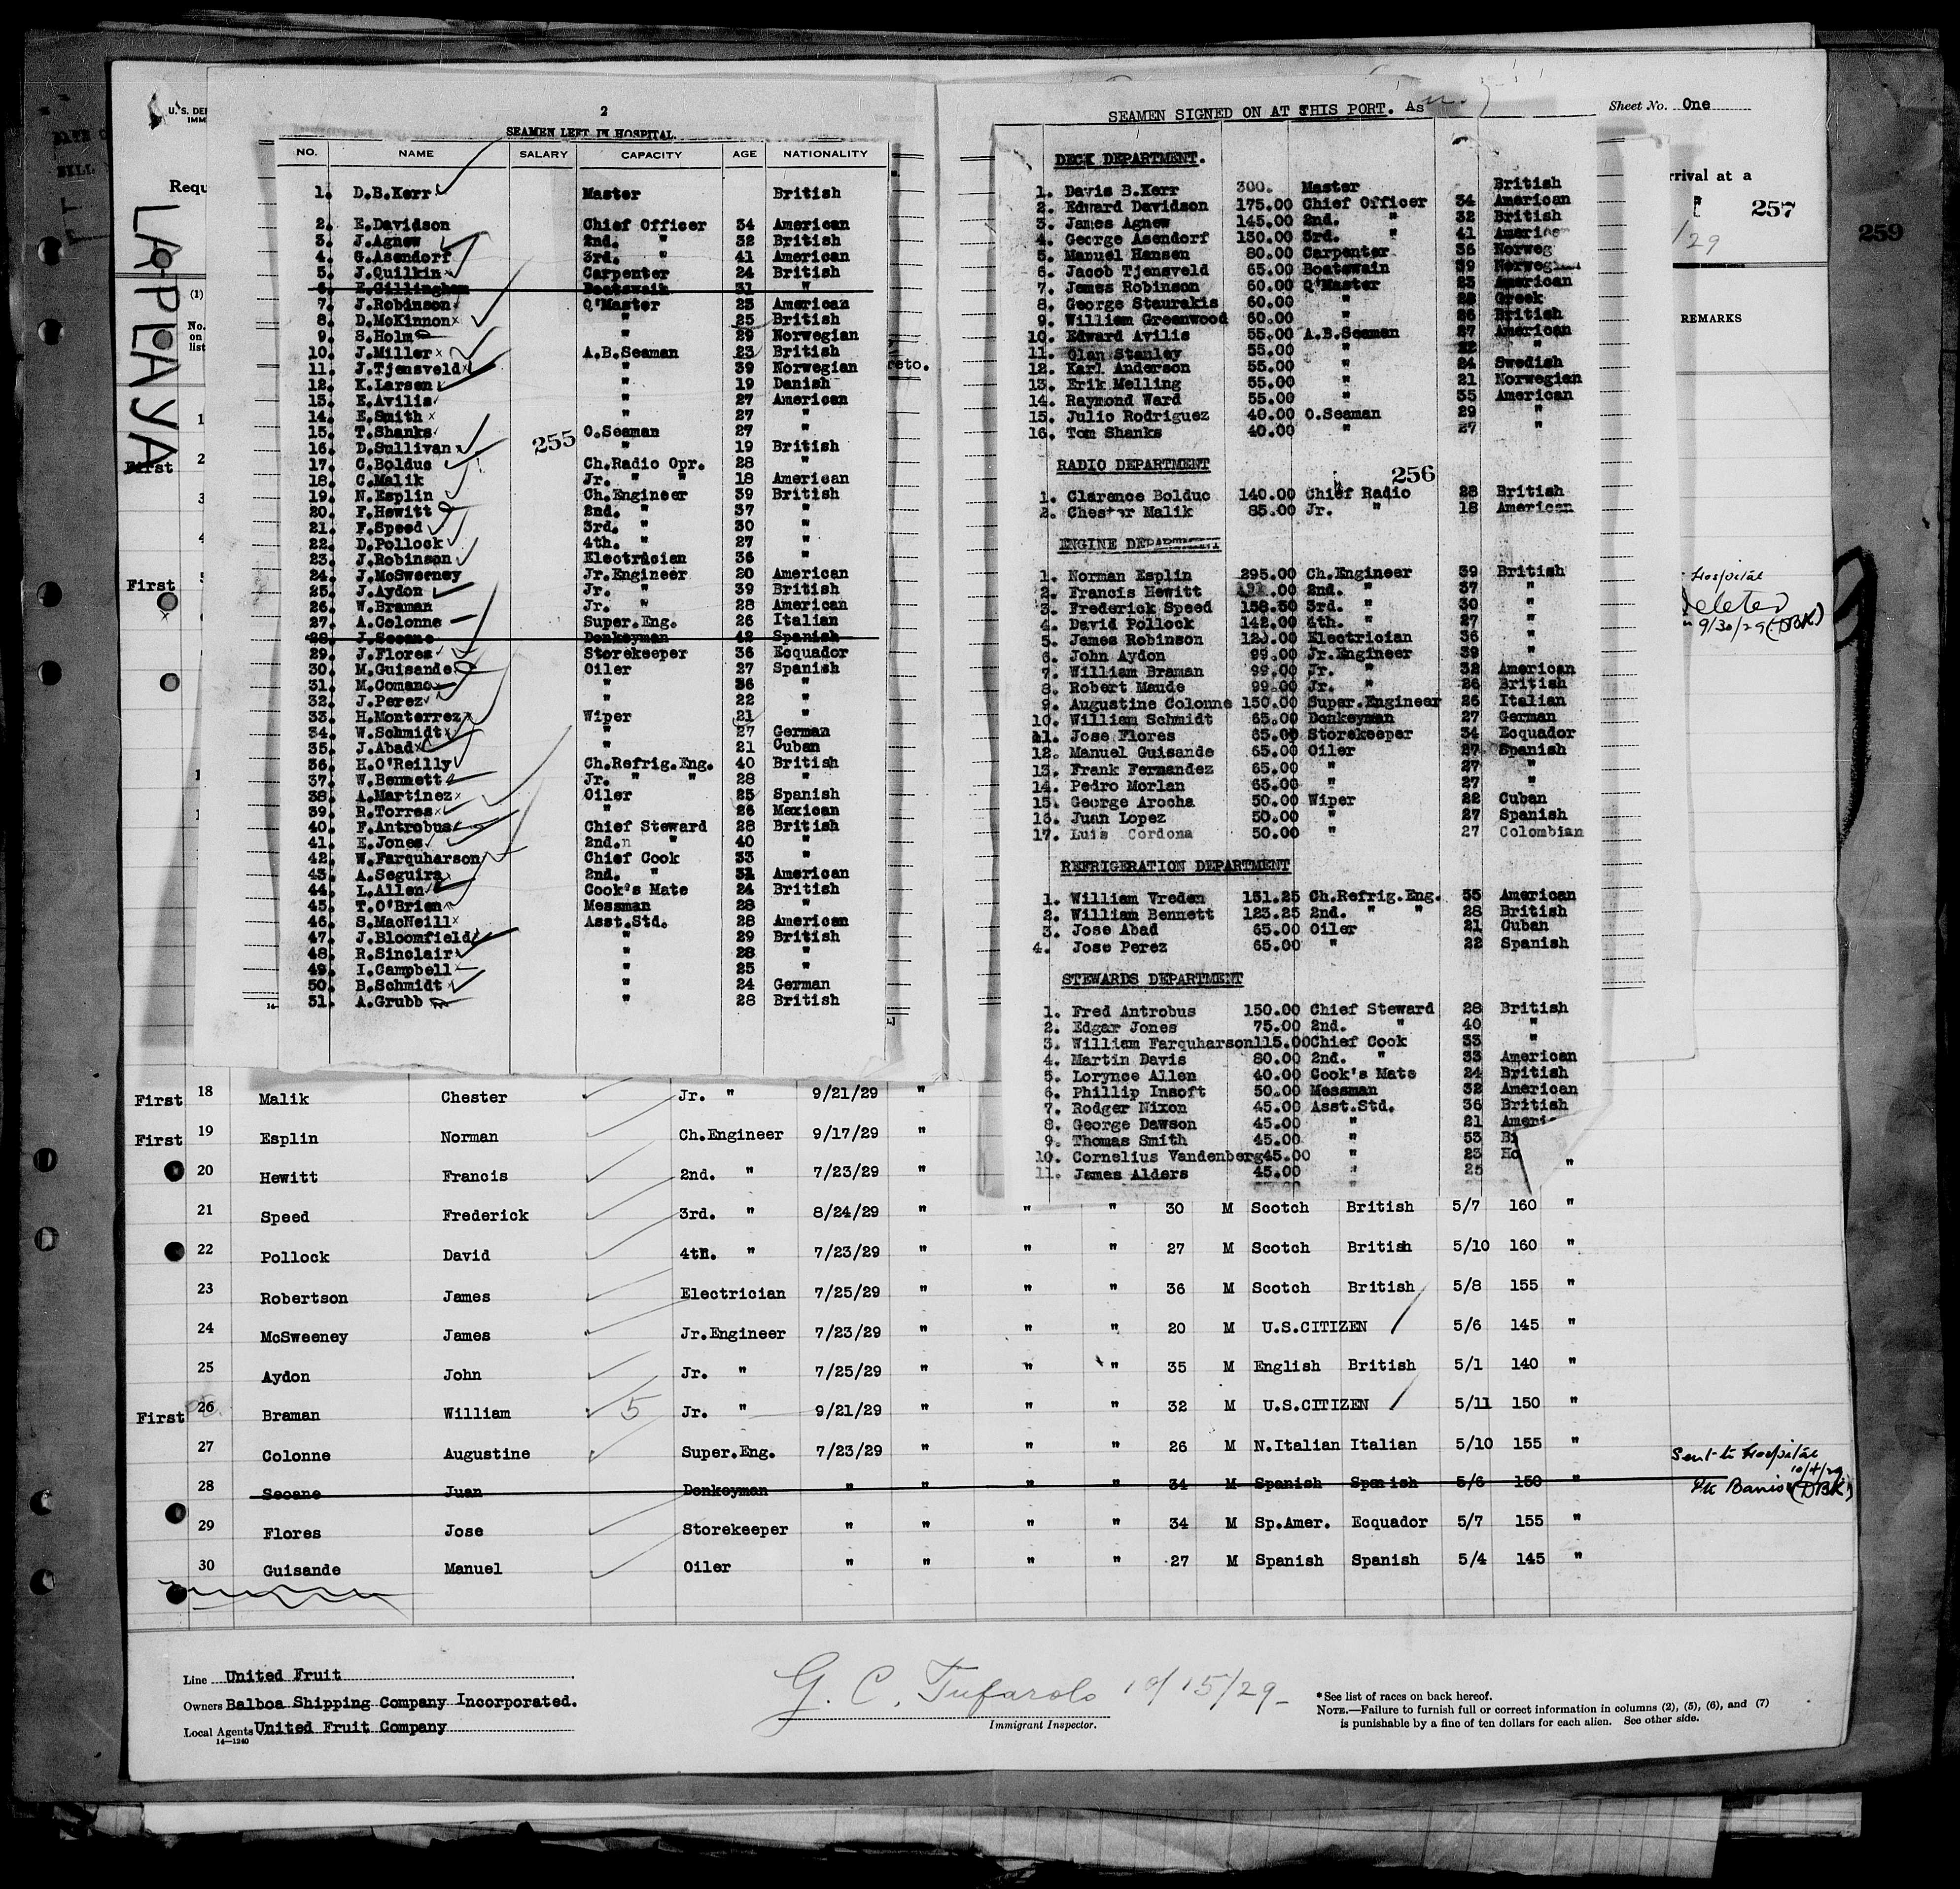 U.S. DE
IMM
Requ
LA PLAYA
(1)
No.
on
list
2
SEAMEN LEFT IN HOSPITAL.
NO. NAME SALARY CAPACITY AGE NATIONALITY
1. D.B.Kerr Master British
2. E.Davidson Chief Officer 34 American
3. J.Agnew 2nd. " 32 British
4. G.Asendorf 3rd. " 41 American
5. J.Quilkin Carpenter 24 British
6. E.Gillingham Boatswain 31 "
7. J.Robinson Q'Master 23 American
8. D.McKinnon " 25 British
9. S.Holm " 29 Norwegian
10. J.Miller A.B.Seaman 23 British
11. J.Tjensveld " 39 Norwegian
12. K.Larsen " 19 Danish
13. E.Avilis " 27 American
14. E.Smith " 27 "
15. T.Shanks O.Seaman 27 "
16. D.Sullivan " 19 British
255
17. C.Bolduc Ch.Radio Opr. 28 "
18. C.Malik Jr. " " 18 American
19. N.Esplin Ch.Engineer 39 British
20. F.Hewitt 2nd. " 37 "
21. F.Speed 3rd. " 30 "
22. D.Pollock 4th. " 27 "
23. J.Robinson Electrician 36 "
24. J.McSweeney Jr.Engineer 20 American
25. J.Aydon Jr. " 39 British
26. W.Braman Jr. " 28 American
27. A.Colonne Super.Eng. 26 Italian
28. J.Seoane Donkeyman 42 Spanish
29. J.Flores Storekeeper 36 Ecquador
30. M.Guisande Oiler 27 Spanish
31. M.Comano " 36 "
32. J.Perez " 22 "
33. H.Monterrez Wiper 21 "
34. W.Schmidt " 27 German
35. J.Abad " 21 Cuban
36. H.O'Reilly Ch.Refrig.Eng. 40 British
37. W.Bennett Jr. " " 28 "
38. A.Martinez Oiler 25 Spanish
39. R.Torres " 26 Mexican
40. F.Antrobus Chief Steward 28 British
41. E.Jones 2nd. " 40 "
42. W.Farquharson Chief Cook 33 "
43. A.Seguira 2nd. " 31 American
44. L.Allen Cook's Mate 24 British
45. T.O'Brien Messman 28 "
46. S.MacNeill Asst.Std. 28 American
47. J.Bloomfield " 29 British
48. R.Sinclair " 28 "
49. I.Campbell " 25 "
50. B.Schmidt " 24 German
51. A.Grubb " 28 British
reto.
SEAMEN SIGNED ON AT THIS PORT. As
DECK DEPARTMENT.
1. Davis B.Kerr 300. Master British
2. Edward Davidson 175.00 Chief Officer 34 American
3. James Agnew 145.00 2nd. " 32 British
4. George Asendorf 130.00 3rd. " 41 American
5. Manuel Hansen 80.00 Carpenter 36 Norweg
6. Jacob Tjensveld 65.00 Boatswain 39 Norwegian
7. James Robinson 60.00 Q'Master 23 American
8. George Staurakis 60.00 " 28 Greek
9. William Greenwood 60.00 " 26 British
10. Edward Avilis 55.00 A.B.Seaman 27 American
11. Olan Stanley 55.00 " 22 "
12. Karl Anderson 55.00 " 24 Swedish
13. Erik Melling 55.00 " 21 Norwegian
14. Raymond Ward 55.00 " 35 American
15. Julio Rodriguez 40.00 O.Seaman 29 "
16. Tom Shanks 40.00 " 27 "
RADIO DEPARTMENT
256
1. Clarence Bolduc 140.00 Chief Radio 28 British
2. Chester Malik 85.00 Jr. " 18 American
ENGINE DEPARTMENT
1. Norman Esplin 295.00 Ch.Engineer 39 British
2. Francis Hewitt 2nd. " 37 "
3. Frederick Speed 158.50 3rd. " 30 "
4. David Pollock 142.00 4th. " 27 "
5. James Robinson Electrician 36 "
6. John Aydon 99.00 Jr.Engineer 39 "
7. William Braman 99.00 Jr. " 32 American
8. Robert Maude 99.00 Jr. " 26 British
9. Augustine Colonne 150.00 Super.Engineer 26 Italian
10. William Schmidt 65.00 Donkeyman 27 German
11. Jose Flores 65.00 Storekeeper 34 Ecquador
12. Manuel Guisande 65.00 Oiler 27 Spanish
13. Frank Fernandez 65.00 " 27 "
14. Pedro Morlan 65.00 " 27 "
15. George Arocha 50.00 Wiper 22 Cuban
16. Juan Lopez 50.00 " 27 Spanish
17. Luis Cordona 50.00 " 27 Colombian
REFRIGERATION DEPARTMENT
1. William Vreden 151.25 Ch.Refrig.Eng. 55 American
2. William Bennett 123.25 2nd. " " 28 British
3. Jose Abad 65.00 Oiler 21 Cuban
4. Jose Perez 65.00 " 22 Spanish
STEWARDS DEPARTMENT
1. Fred Antrobus 150.00 Chief Steward 28 British
2. Edgar Jones 75.00 2nd. " 40 "
3. William Farquharson115.00Chief Cook 33 "
4. Martin Davis 80.00 2nd. " 33 American
5. Lorynce Allen 40.00 Cook's Mate 24 British
6. Phillip Insoft 50.00 Messman 32 American
7. Rodger Nixon 45.00 Asst.Std. 36 British
8. George Dawson 45.00 " 21 Ameri
9. Thomas Smith 45.00 " 53 B
10. Cornelius Vandenberg45.00 " 23 Ho
11. James Alders 45.00 " 25
Sheet No. One
rrival at a
257
259
/29
REMARKS
Hospital
Deleted
9/30/29 (DBK)
First 2
3
4
First 5
First 18 Malik Chester Jr. " 9/21/29 "
First 19 Esplin Norman Ch.Engineer 9/17/29 "
20 Hewitt Francis 2nd. " 7/23/29 " "
21 Speed Frederick 3rd. " 8/24/29 " " " 30 M Scotch British 5/7 160 "
22 Pollock David 4th. " 7/23/29 " " " 27 M Scotch British 5/10 160 "
23 Robertson James Electrician 7/25/29 " " " 36 M Scotch British 5/8 155 "
24 McSweeney James Jr.Engineer 7/23/29 " " " 20 M U.S.CITIZEN 5/6 145 "
25 Aydon John Jr. " 7/25/29 " " " 35 M English British 5/1 140 "
First 26 Braman William 5 Jr. " 9/21/29 " " " 32 M U.S.CITIZEN 5/11 150 "
27 Colonne Augustine Super.Eng. 7/23/29 " " " 26 M N.Italian Italian 5/10 155 "
Sent to Hospital
10/4/29
28 Seoane Juan Donkeyman " " " " 34 M Spanish Spanish 5/6 150 " (DBK)
29 Flores Jose Storekeeper " " " " 34 M Sp.Amer. Ecquador 5/7 155 "
30 Guisande Manuel Oiler " " " " 27 M Spanish Spanish 5/4 145 "
Line United Fruit
Owners Balboa Shipping Company Incorporated.
Local Agents United Fruit Company
14—1240
G. C. Tufarolo 10/15/29
Immigrant Inspector.
*See list of races on back hereof.
NOTE.—Failure to furnish full or correct information in columns (2), (5), (6), and (7)
is punishable by a fine of ten dollars for each alien. See other side.